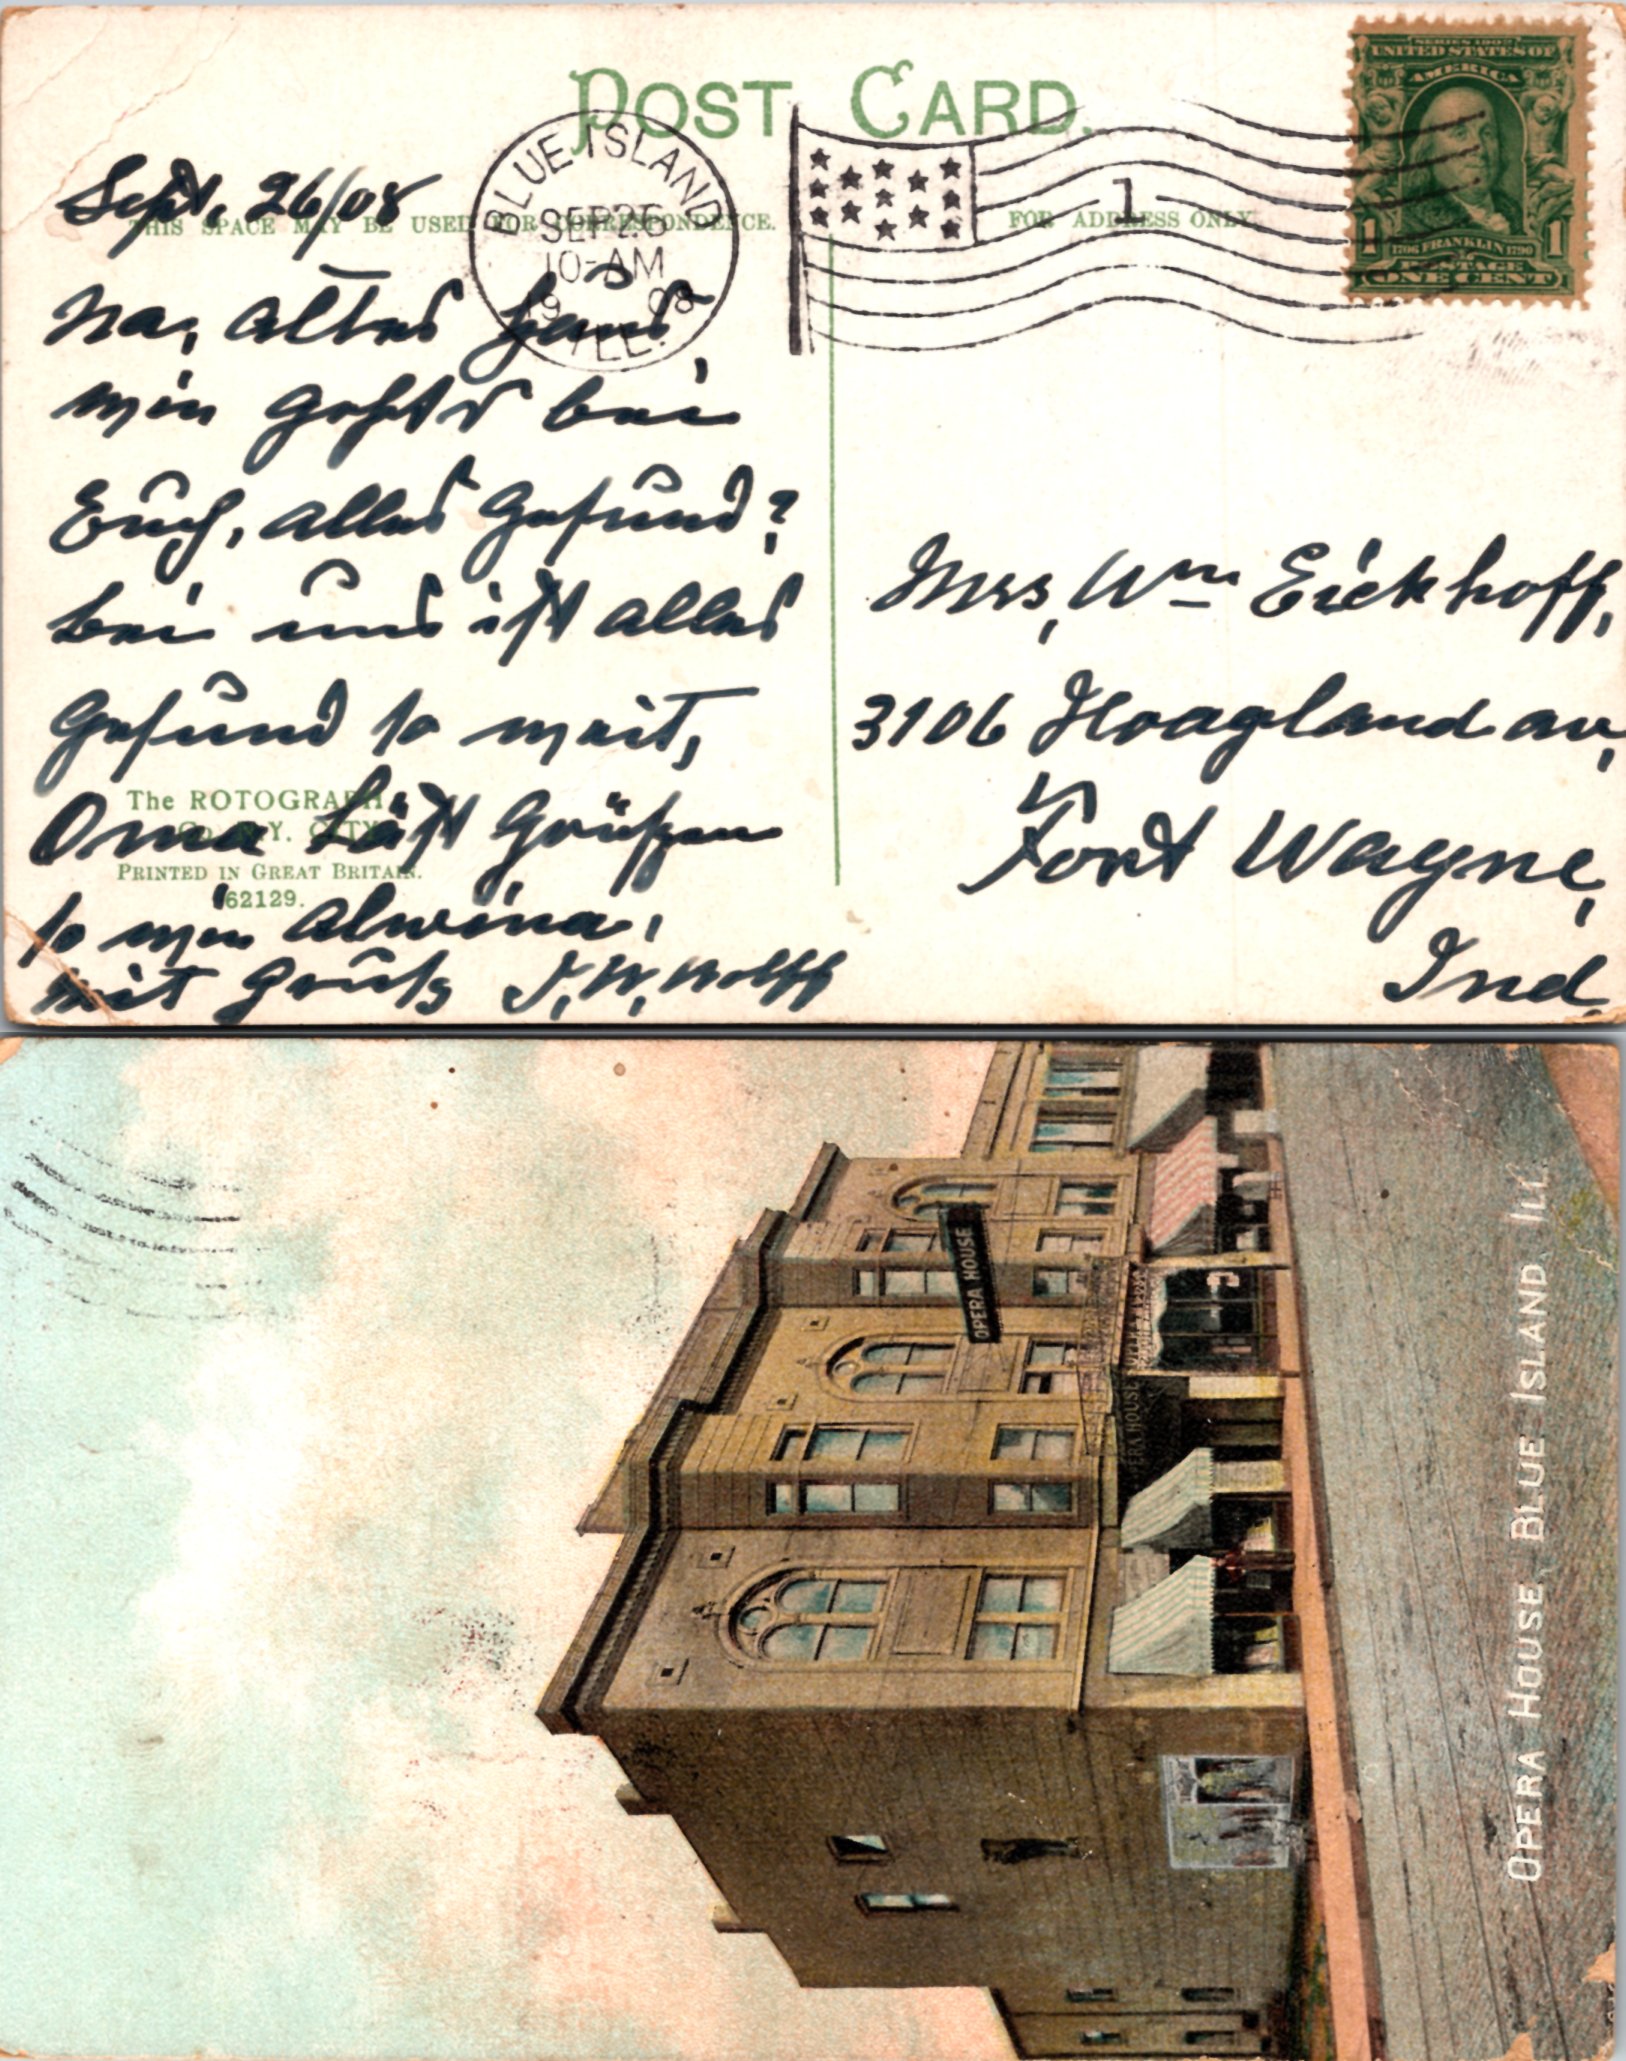 POST CARD.
SERIES 1902
UNITED STATES OF
AMERICA
1706 FRANKLIN 1790
POSTAGE
1 ONE CENT 1
BLUE ISLAND
SEP 26
10-AM
19 08
ILL.
1
THIS SPACE MAY BE USED FOR CORRESPONDENCE.
FOR ADDRESS ONLY.
Sept. 26/08
Na, altes Haus,
wie gehts bei
Euch, alles gesund?
bei uns ist alles
gesund so weit,
Oma läst Grüßen
so wie Alwina,
mit Gruß J. W. Wolff
The ROTOGRAPH
Co., N.Y. CITY
PRINTED IN GREAT BRITAIN.
62129.
Mrs, Wm Eickhoff,
3106 Hoagland av,
Fort Wayne,
Ind,
OPERA HOUSE
OPERA HOUSE
OPERA HOUSE, BLUE ISLAND, ILL.